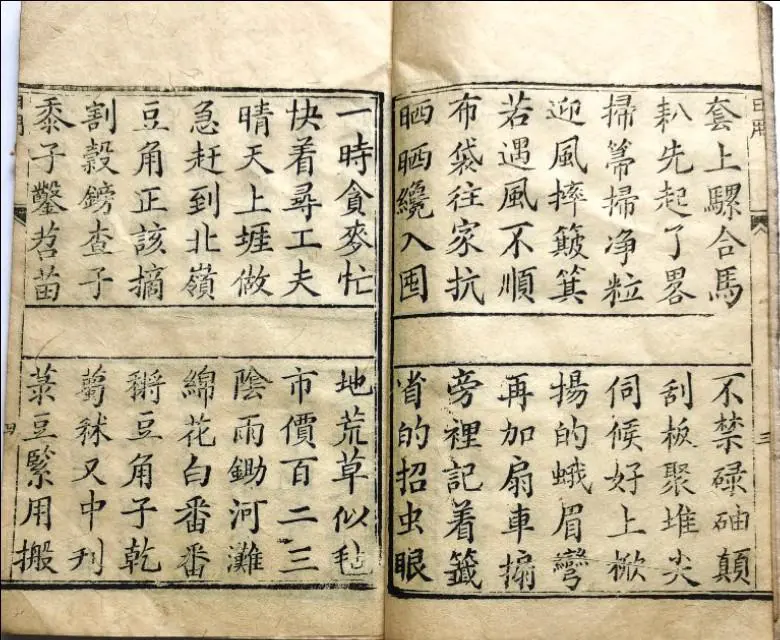 日用
三
套上騾合馬
不禁碌顛
先起了畧
刮板聚堆尖
掃箒掃净粒
伺候好上
迎風摔簸箕
揚的蛾眉彎
若遇風不順
再加扇車搧
布袋往家抗
旁裡記着籤
晒晒纔入囤
省的招虫眼
一時貪麥忙
地荒草似毡
快着尋工夫
市價百二三
晴天上堐做
陰雨鋤河灘
急赶到北嶺
綿花白番番
豆角正該摘
豆角子乾
割穀鎊查子
秫又中刋
黍子鑿苕苗
菉豆緊用搬